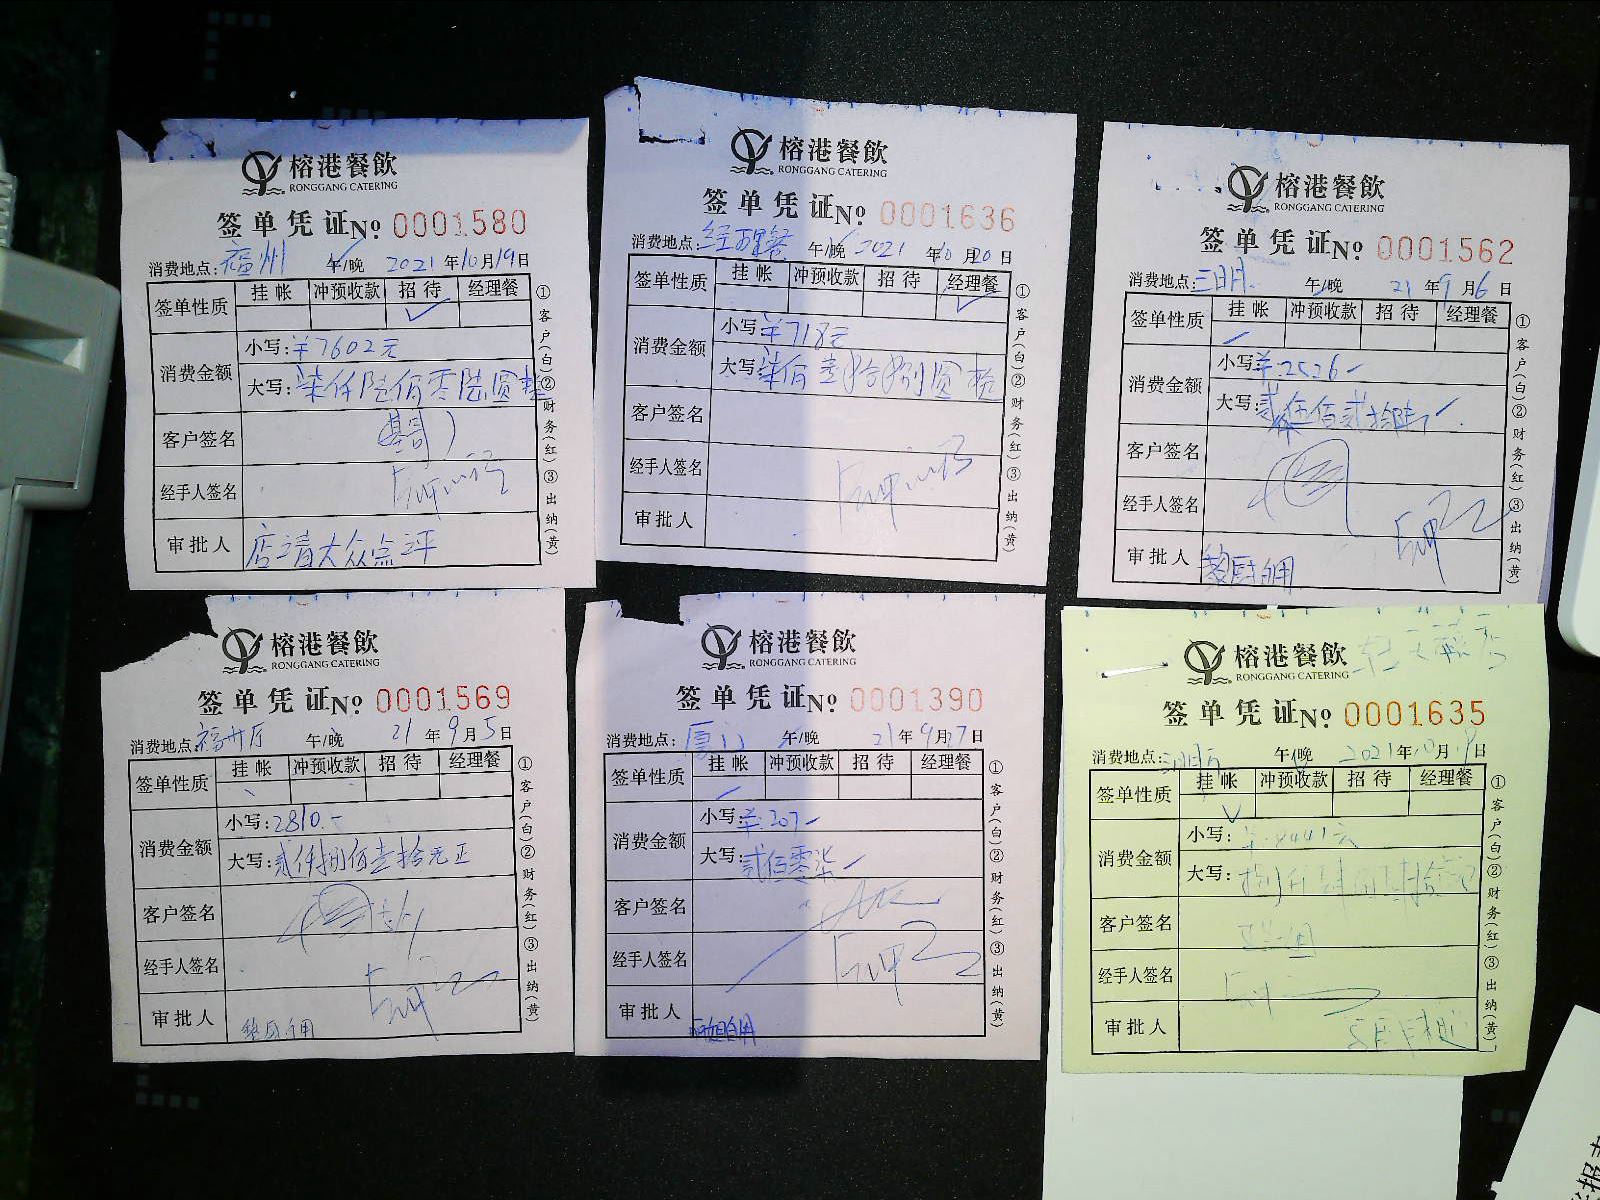 榕港餐飲
RONGGANG CATERING
签单凭证№ 0001580
消费地点:福州 午/晚 2021年10月19日
签单性质 挂帐 冲预收款 招待 经理餐
消费金额 小写:¥7602元
大写:柒仟陆佰零陆圆整
客户签名
经手人签名
审批人 店请大众点评
①客户(白)②财务(红)③出纳(黄)
榕港餐飲
RONGGANG CATERING
签单凭证№ 0001636
消费地点:经理餐 午/晚 2021年10月20日
签单性质 挂帐 冲预收款 招待 经理餐
消费金额 小写:¥718元
大写:柒佰壹拾捌圆整
客户签名
经手人签名
审批人
①客户(白)②财务(红)③出纳(黄)
榕港餐飲
RONGGANG CATERING
签单凭证№ 0001562
消费地点:三明 午/晚 21年9月6日
签单性质 挂帐 冲预收款 招待 经理餐
消费金额 小写:¥2526-
大写:贰仟伍佰贰拾陆
客户签名
经手人签名
审批人
①客户(白)②财务(红)③出纳(黄)
榕港餐飲
RONGGANG CATERING
签单凭证№ 0001569
消费地点:福州厅 午/晚 21年9月5日
签单性质 挂帐 冲预收款 招待 经理餐
消费金额 小写:2810.-
大写:贰仟捌佰壹拾元正
客户签名
经手人签名
审批人
①客户(白)②财务(红)③出纳(黄)
榕港餐飲
RONGGANG CATERING
签单凭证№ 0001390
消费地点:厦门 午/晚 21年9月27日
签单性质 挂帐 冲预收款 招待 经理餐
消费金额 小写:¥207-
大写:贰佰零柒
客户签名
经手人签名
审批人
①客户(白)②财务(红)③出纳(黄)
榕港餐飲
RONGGANG CATERING
签单凭证№ 0001635
消费地点:三明厅 午/晚 2021年10月19日
签单性质 挂帐 冲预收款 招待 经理餐
消费金额 小写:¥8441元
大写:
客户签名
经手人签名
审批人
①客户(白)②财务(红)③出纳(黄)